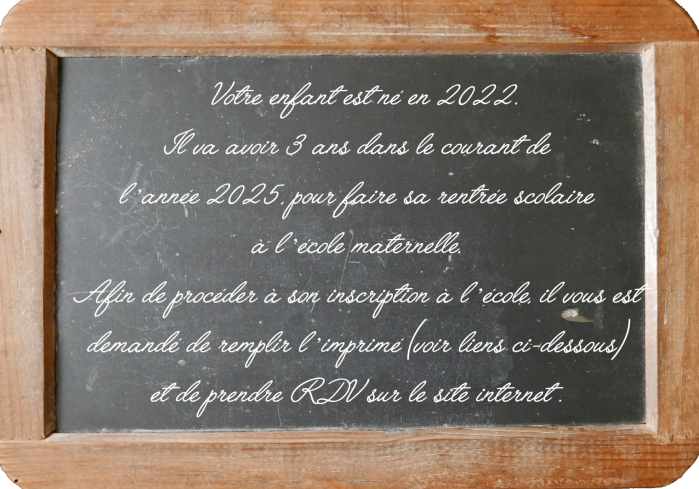 Votre enfant est né en 2022.
Il va avoir 3 ans dans le courant de
l'année 2025, pour faire sa rentrée scolaire
à l'école maternelle.
Afin de procéder à son inscription à l'école, il vous est
demandé de remplir l'imprimé (voir liens ci-dessous)
et de prendre RDV sur le site internet .